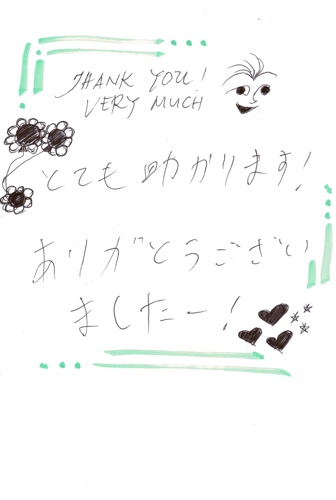 THANK YOU!
VERY MUCH
とても助かります!
ありがとうござい
ましたー!